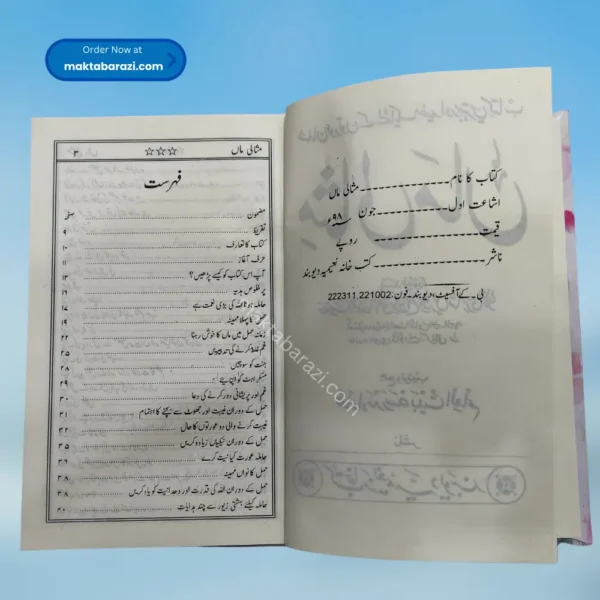 Order Now at
maktabarazi.com
کتاب کا نام ۔۔۔۔۔۔۔۔۔۔۔۔ مثالی ماں
اشاعت اول ۔۔۔۔۔۔ جون ۹۸ء
قیمت ۔۔۔۔۔۔ روپے
ناشر ۔۔۔۔۔۔ کتب خانہ نعیمیہ دیوبند
پی۔کے آفسیٹ، دیوبند۔فون: 222311,221002
مثالی ماں ☆☆☆ ۳
فہرست
مضمون صفحہ
تقریظ ۹
کتاب کا تعارف ۱۰
حرف آغاز ۱۱
آپ اس کتاب کو کیسے پڑھیں؟ ۱۳
پرخلوص ہدیہ
حاملہ ہونا اللہ کی بڑی نعمت ہے
کا پہلا مہینہ
زمانہ حمل میں ماں کا خوش رہنا
غم غلط کرنے کی تدبیریں ۲۵
جنت کو سوچیں ۲۸
۲۹
غم اور پریشانی دور کرنے کی دعا ۳۰
حمل کے دوران غیبت اور جھوٹ سے بچنے کا اہتمام ۳۱
غیبت کرنے والی دو عورتوں کا حال ۳۲
حمل کے دوران نیکیاں زیادہ کریں ۳۵
حاملہ عورت کیا نیت کرے ۳۶
حمل کا نواں مہینہ ۳۸
حمل کے دوران اللہ کی قدرت اور وحدانیت کو یاد کریں ۳۸
حاملہ کیلئے بہشتی زیور سے چند ہدایات ۴۰
maktabarazi.com